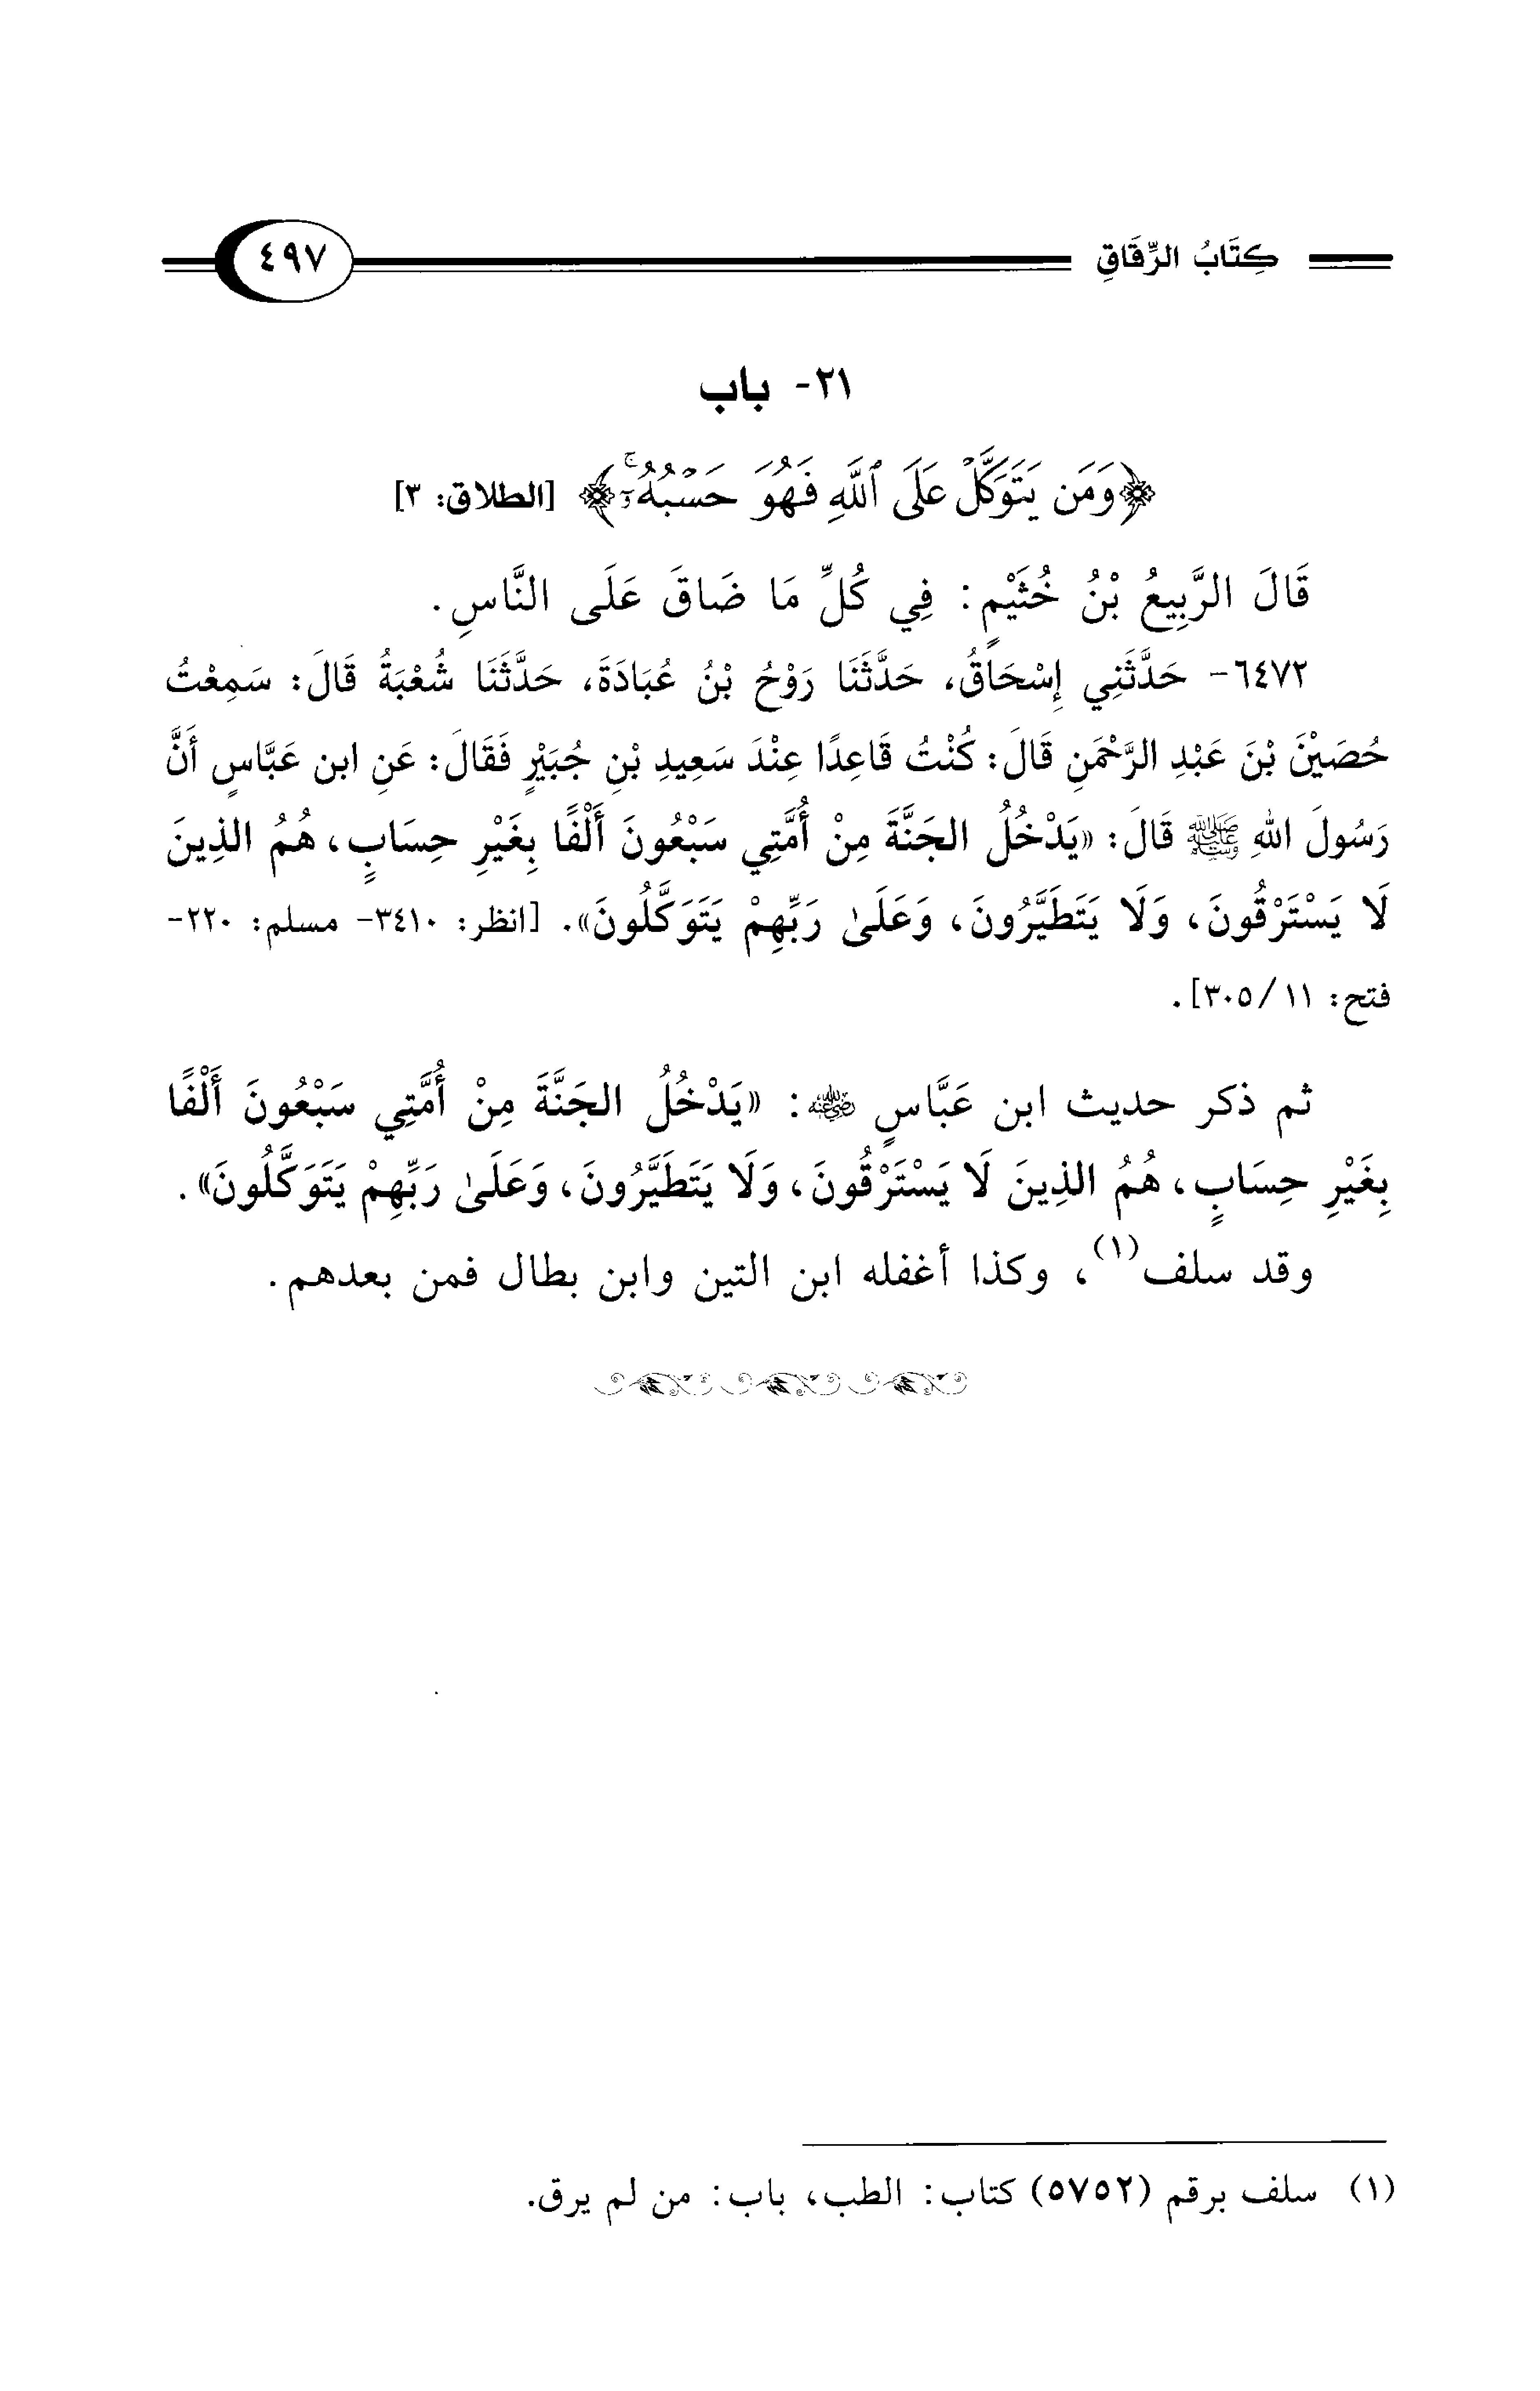 كِتَابُ الرِّقَاقِ ٤٩٧
٢١- باب
﴿وَمَن يَتَوَكَّلْ عَلَى ٱللَّهِ فَهُوَ حَسْبُهُۥٓۚ﴾ [الطلاق: ٣]
قَالَ الرَّبِيعُ بْنُ خُثَيْمٍ: فِي كُلِّ مَا ضَاقَ عَلَى النَّاسِ.
٦٤٧٢- حَدَّثَنِي إِسْحَاقُ، حَدَّثَنَا رَوْحُ بْنُ عُبَادَةَ، حَدَّثَنَا شُعْبَةُ قَالَ: سَمِعْتُ
حُصَيْنَ بْنَ عَبْدِ الرَّحْمَنِ قَالَ: كُنْتُ قَاعِدًا عِنْدَ سَعِيدِ بْنِ جُبَيْرٍ فَقَالَ: عَنِ ابن عَبَّاسٍ أَنَّ
رَسُولَ اللهِ ﷺ قَالَ: «يَدْخُلُ الجَنَّةَ مِنْ أُمَّتِي سَبْعُونَ أَلْفًا بِغَيْرِ حِسَابٍ، هُمُ الذِينَ
لَا يَسْتَرْقُونَ، وَلَا يَتَطَيَّرُونَ، وَعَلَىٰ رَبِّهِمْ يَتَوَكَّلُونَ». [انظر: ٣٤١٠- مسلم: ٢٢٠-
فتح: ١١/ ٣٠٥].
ثم ذكر حديث ابن عَبَّاسٍ ﵁: «يَدْخُلُ الجَنَّةَ مِنْ أُمَّتِي سَبْعُونَ أَلْفًا
بِغَيْرِ حِسَابٍ، هُمُ الذِينَ لَا يَسْتَرْقُونَ، وَلَا يَتَطَيَّرُونَ، وَعَلَىٰ رَبِّهِمْ يَتَوَكَّلُونَ».
وقد سلف(١)، وكذا أغفله ابن التين وابن بطال فمن بعدهم.
(١) سلف برقم (٥٧٥٢) كتاب: الطب، باب: من لم يرق.